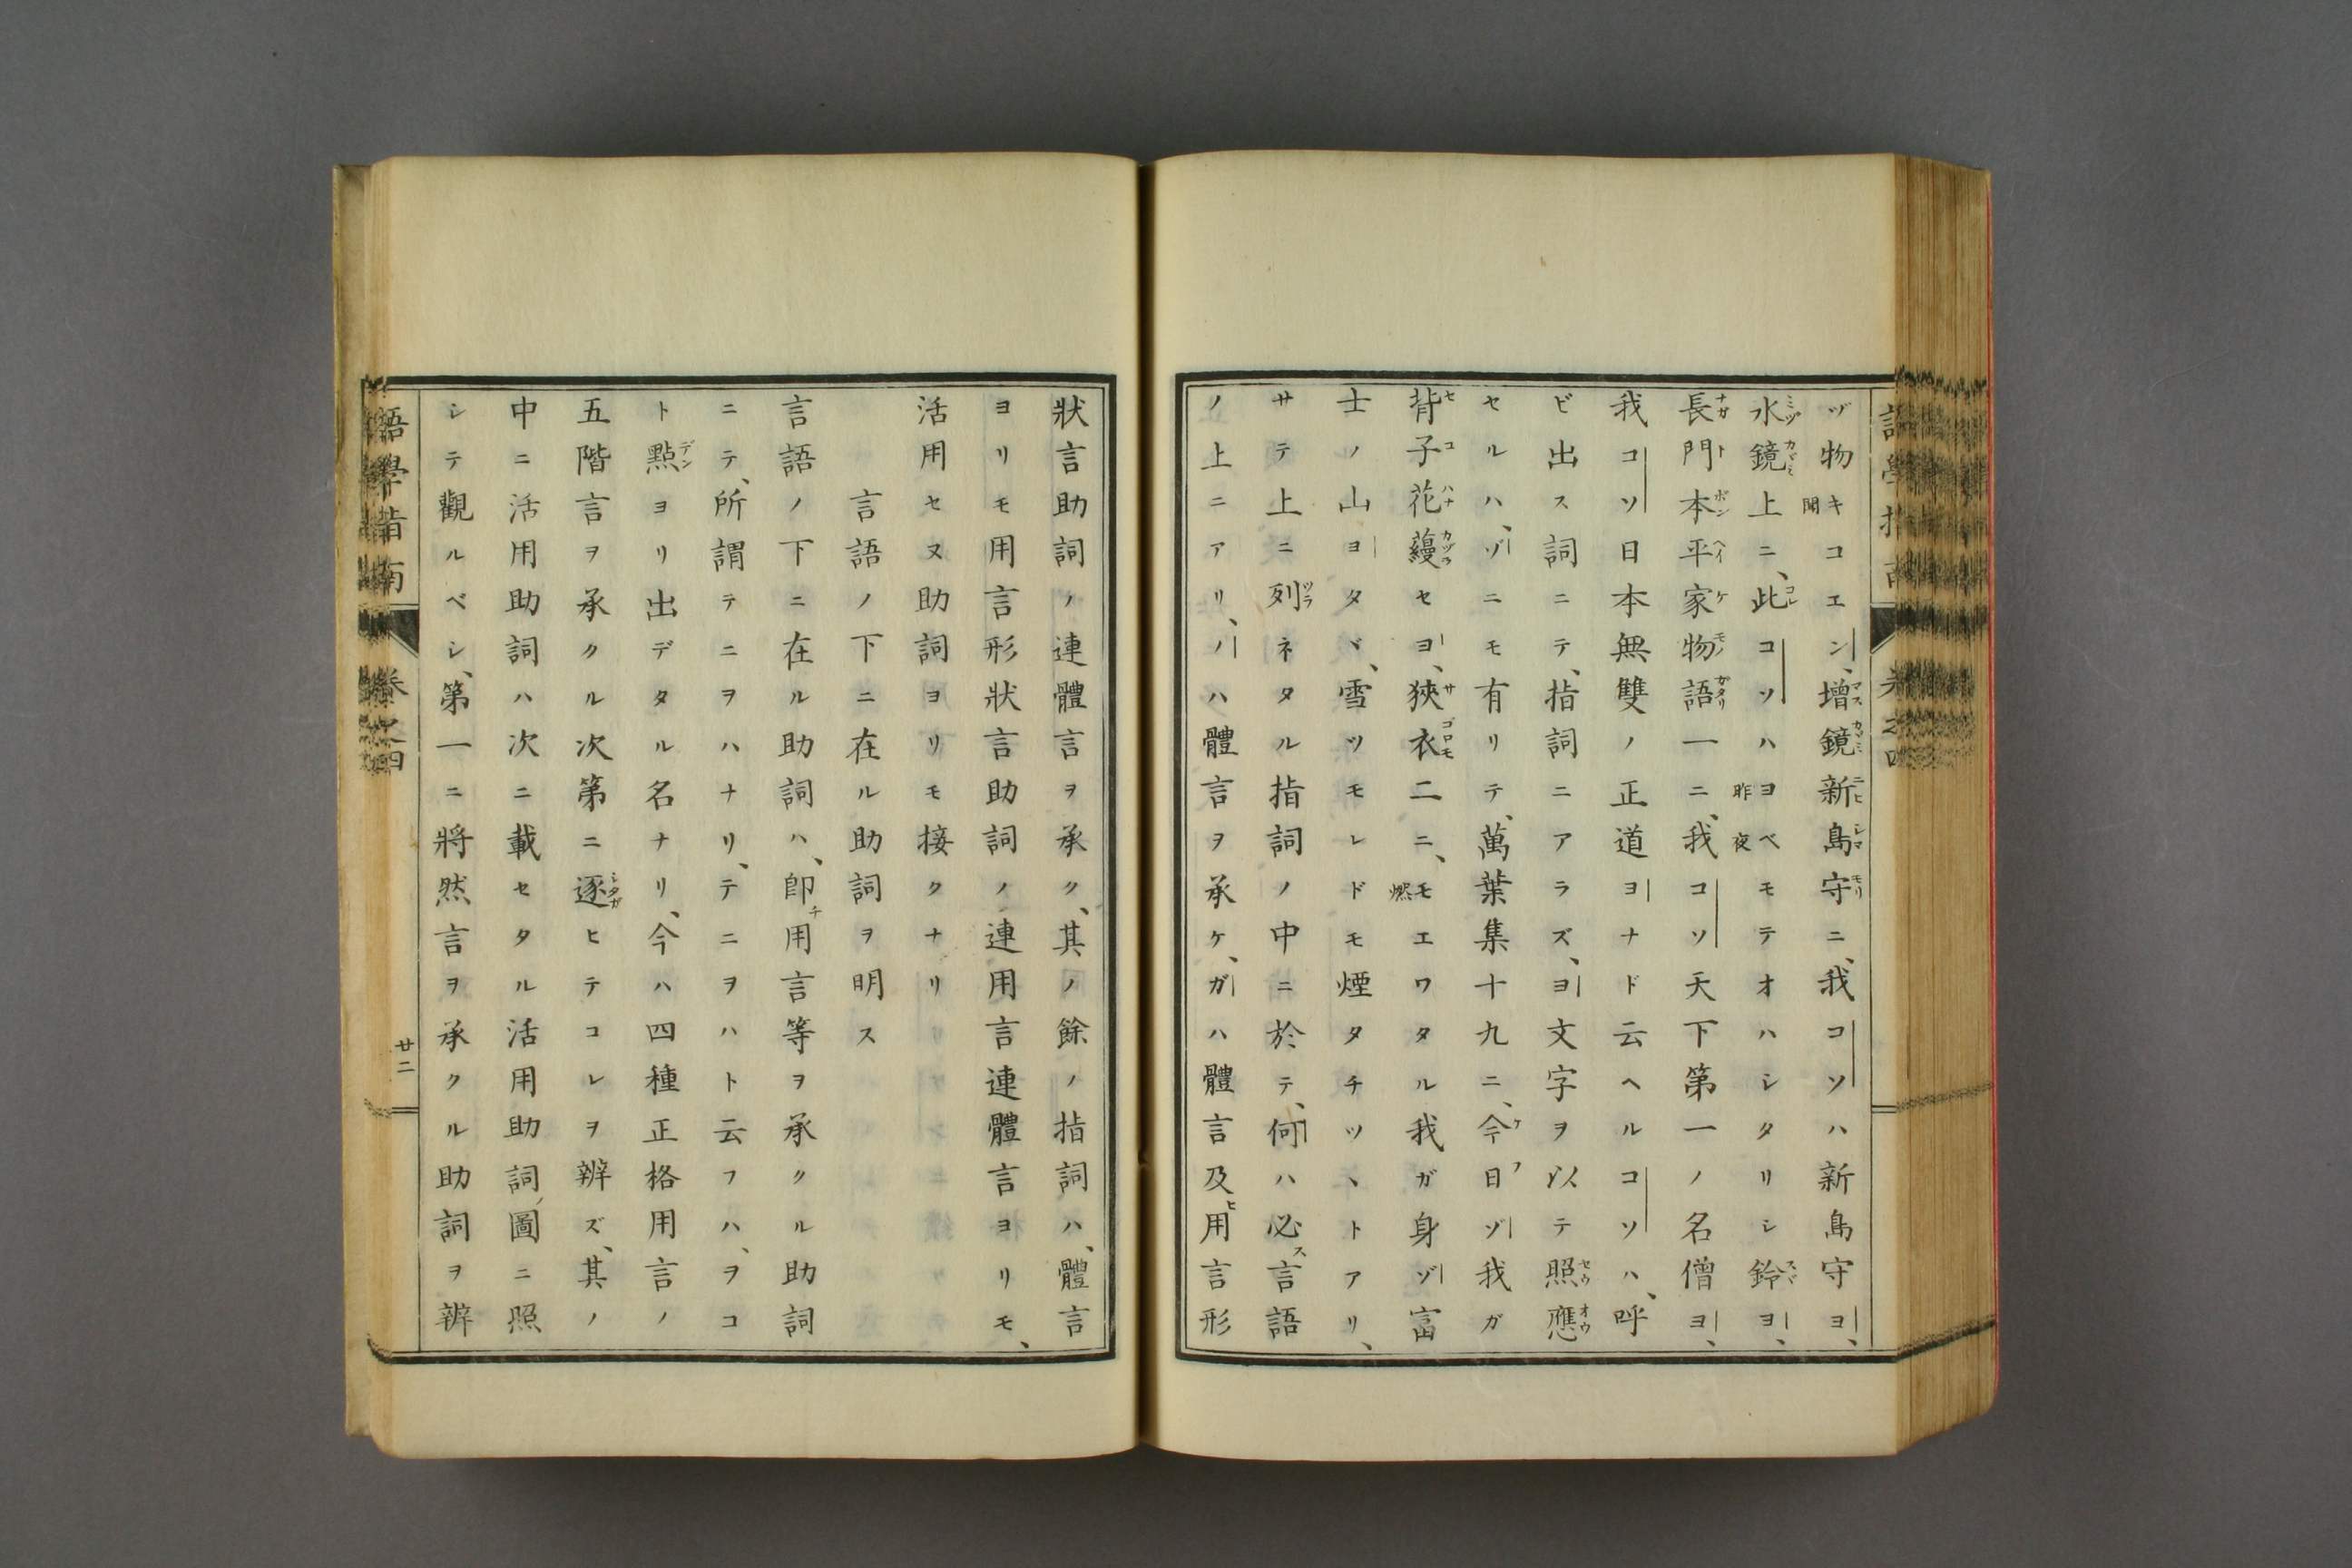 ヅ物キコエン、増鏡新島守ニ、我コソハ新島守ヨ、
水鏡上ニ、此コソハヨベモテオハシタリシ鈴ヨ、
長門本平家物語一ニ、我コソ天下第一ノ名僧ヨ、
我コソ日本無雙ノ正道ヨナド云ヘルコソハ、呼
ビ出ス詞ニテ、指詞ニアラズ、ヨ文字ヲ以テ照應
セルハ、ゾニモ有リテ、萬葉集十九ニ、今日ゾ我ガ
背子花蘰セヨ、狹衣二ニ、モエワタル我ガ身ゾ富
士ノ山ヨタヾ、雪ツモレドモ煙タチツヽトアリ、
サテ上ニ列ネタル指詞ノ中ニ於テ、何ハ必ス言語
ノ上ニアリ、ノハ體言ヲ承ケ、ガハ體言及ヒ用言形
狀言助詞ノ連體言ヲ承ク、其ノ餘ノ指詞ハ、體言
ヨリモ用言形狀言助詞ノ連用言連體言ヨリモ、
活用セヌ助詞ヨリモ接クナリ
言語ノ下ニ在ル助詞ヲ明ス
言語ノ下ニ在ル助詞ハ、卽チ用言等ヲ承クル助詞
ニテ、所謂テニヲハナリ、テニヲハト云フハ、ヲコ
ト點ヨリ出デタル名ナリ、今ハ四種正格用言ノ
五階言ヲ承クル次第ニ逐ヒテコレヲ辨ズ、其ノ
中ニ活用助詞ハ次ニ載セタル活用助詞ノ圖ニ照
シテ觀ルベシ、第一ニ將然言ヲ承クル助詞ヲ辨
語學指南 卷之四 廿二